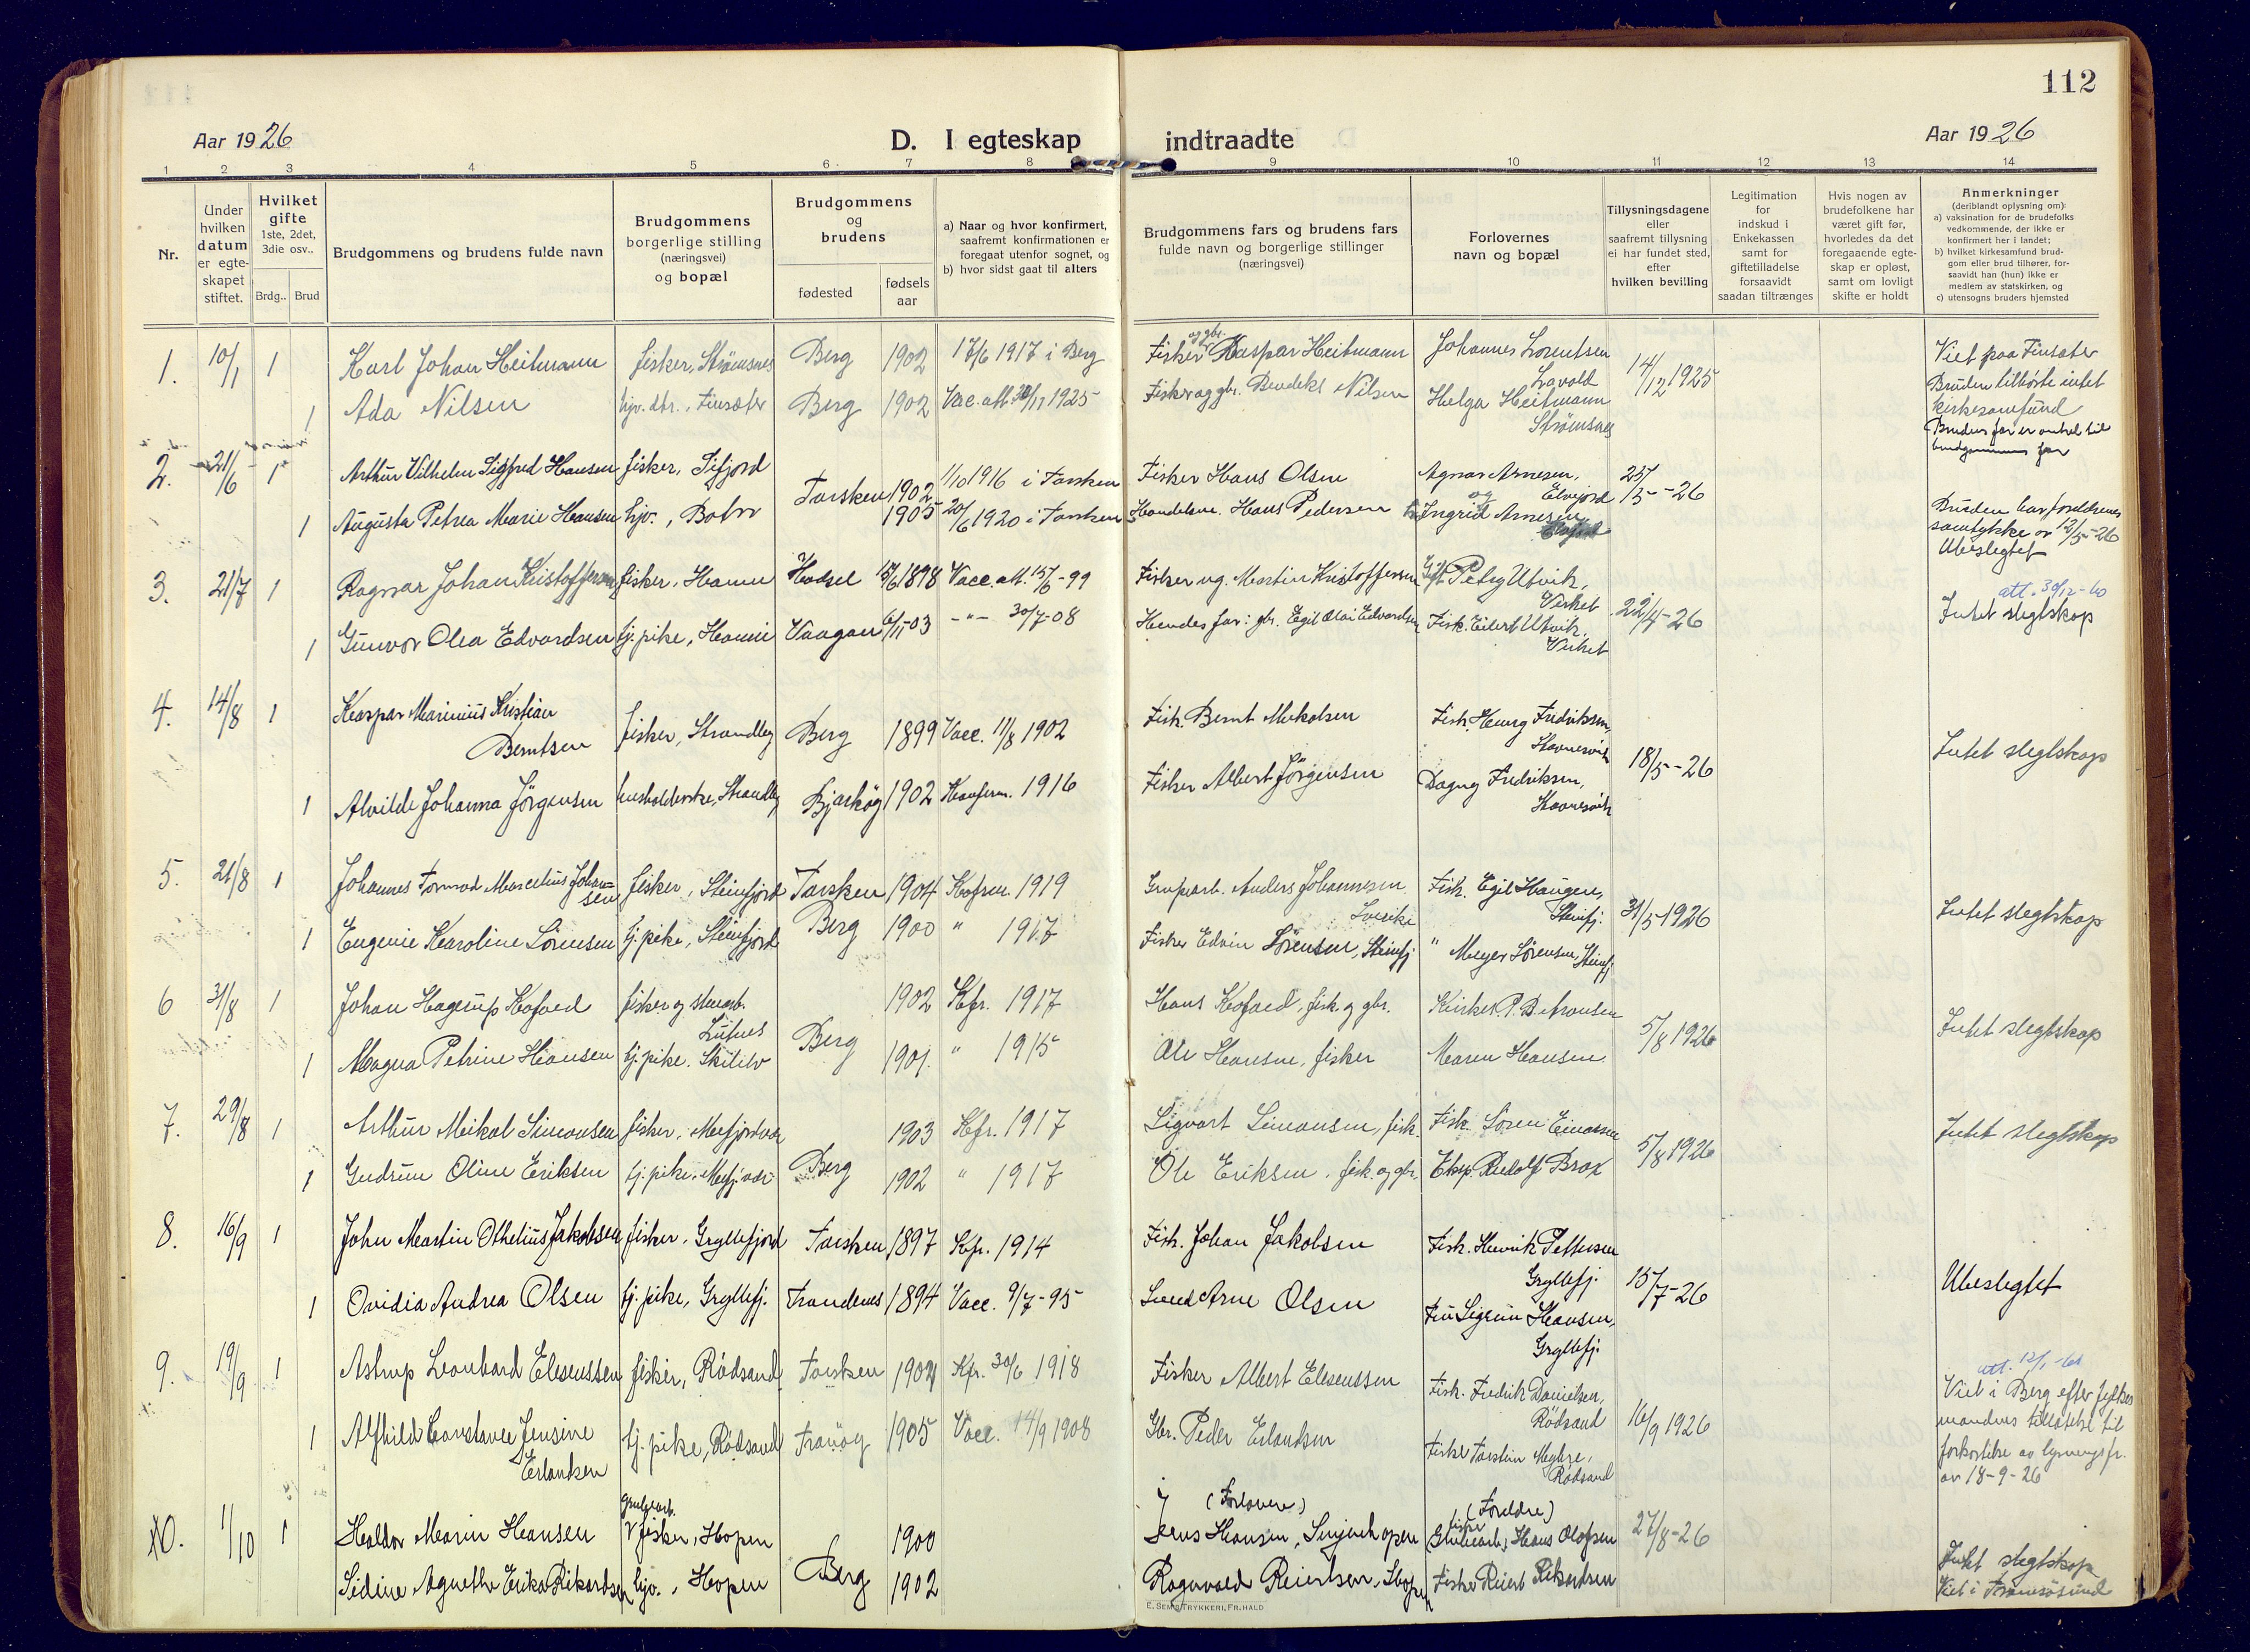 112
Aar 1926
D. I egteskap indtraadte
Aar 1926
1 2 3 4 5 6 7 8 9 10 11 12 13 14
Nr.
Under
hvilken
datum
er egte-
skapet
stiftet.
Hvilket
gifte
1ste, 2det,
3die osv..
Brdg.. Brud
Brudgommens og brudens fulde navn
Brudgommens
borgerlige stilling
(næringsvei)
og bopæl
Brudgommens
og
brudens
fødested
fødsels
aar
a) Naar og hvor konfirmert,
saafremt konfirmationen er
foregaat utenfor sognet, og
b) hvor sidst gaat til alters
Brudgommens fars og brudens fars
fulde navn og borgerlige stillinger
(næringsvei)
Forlovernes
navn og bopæl
Tillysningsdagene
eller
saafremt tillysning
ei har fundet sted,
efter
hvilken bevilling
Legitimation
for
indskud i
Enkekassen
samt for
giftetilladelse
forsaavidt
saadan tiltrænges
Hvis nogen av
brudefolkene har
været gift før,
hvorledes da det
foregaaende egte-
skap er opløst,
samt om lovligt
skifte er holdt
Anmerkninger
(deriblandt oplysning om):
a) vaksination for de brudefolks
vedkommende, der ikke er
konfirmert her i landet;
b) hvilket kirkesamfund brud-
gom eller brud tilhører, for-
saavidt han (hun) ikke er
medlem av statskirken, og
c) utensogns bruders hjemsted
1. 10/1 1 Karl Johan Heitmann fisker, Strömsnes Berg 1902 17/6 1917 i Berg Fisker og gbr. Kaspar Heitmann Johannes Lorentsen Lavold 14/12 1925 Viet paa Finsæter
1 Ada Nilsen hjv. dtr., Finsæter Berg 1902 Vac. att. 30/11 1925 Fisker og gbr. Nilsen Helga Heitmann Strömsnes
Bruden tilhörte intet
kirkesamfund
Brudens far er onkel til
brudgommens far
2. 21/6 1 Arthur Vilhelm Sigfred Hansen fisker, Sifjord Torsken 1902 1/10 1916 i Torsken Fisker Hans Olsen Agnar Arnesen, Elvejord 25/5-26
1 Augusta Petrea Marie Hansen hjv., Botn 1905 20/6 1920 i Torsken Hans Pedersen og Ingrid Arnesen
Bruden har forældrenes
samtykke av 12/5-26
Ubeslegtet
3. 21/7 1 Ragnar Johan Kristoffersen fisker, Hamn Hadsel 15/6 1898 Vacc. att. 15/6-99 Fisker Martin Kristoffersen Petry Utvik, 22/4-26 att. 30/12-60
Intet slegtskap
1 Gunvor Olea Edvardsen tj. pike, Hamn Vaagan 6/11-03 -"- 30/7-08 Hendes far: gbr. Egil Olai Edvardsen Fisk. Eilert Utvik,
4. 14/8 1 Kaspar Marinius Kristian
Berntsen fisker, Strandby Berg 1899 Vacc. 11/8 1902 Fisk. Bernt Mikalsen Fisk. Henry Fredriksen, 18/5-26 Intet slegtskap
1 Alvilde Johanna Jörgensen husholderske, Strandby Bjarköy 1902 Konferm. 1916 Fisker Albert Jörgensen Dagny Fredriksen,
5. 21/8 1 Johannes Tormod Marcelius Johan-
sen fisker, Steinfjord Torsken 1904 Kofrm. 1919 Grubarb. Anders Johannesen Sverike Fisk. Egil Haugen, Steinfj. 31/5 1926 Intet slegtskap
1 Eugenie Karoline Sörensen tj. pike, Steinfjord Berg 1900 " 1917 Fisker Edvin Sörensen, Steinfj. " Meyer Sörensen, Steinfj.
6 31/8 1 Johan Hagerup Kofoed fisker og Berg 1902 Kfr. 1917 Hans Kofoed, fisk. og gbr. 5/8 1926 Intet slegtskap
1 Magna Petrine Hansen tj. pike. 1901. " 1915 Ole Hansen, fisker Maren Hansen
7. 29/8 1 Arthur Meikal Simonsen fisker, Mefjordvær Berg 1903 Kfr. 1917 Sigvart Simonsen, fisk. Fisk. Sören Einarsen 5/8 1926 Intet slegtskap
1 Gudrun Oline Eriksen tj. pike, Mefj.vær 1902 " 1917 Ole Eriksen, fisk. og gbr. Eksp. Rudolf Brox
8. 16/9 1 John Martin Othelius Jakobsen fisker, Gryllefjord Torsken 1897 Kfr. 1914 Fisk. Johan Jakobsen Fisk. Henrik Pettersen Gryllefj. 15/7-26 Ubeslegtet
1 Ovidia Andrea Olsen tj. pike, Gryllefj. Trondenes 1894 Vacc. 9/7-95 Arne Olsen Sigrun Hansen, Gryllefj.
9. 19/9 1 Astrup Leonhard Elesenssen fisker, Rödsand Torsken 1904 Kfr. 30/6 1918 Fisker Albert Elesenssen Fisk. Fredrik Danielsen, Rödsand 16/9 1926 att. 12/1-61
1 Alfhild Constance Jensine
Erlantsen tj. pike, Rödsand Tranöy 1905 Vacc. 14/9 1908 Gbr. Peder Erlandsen Fisker Torstein Myhre, Rödsand
Viet i Berg efter fylkes
mandens tillatelse til
forkortelse av lysningsfr.
av 18-9-26
10. 1/10 1 Haldor Marin Hansen Grubearb. fisker, Hopen Berg 1900 (Forlovere) Jens Hansen, Sinjenhopen (Foreldre) fisker Hans Olofsen 27/8-26
Sidine Agnethe Erika Rikardsen hjv., Hopen 1902 Ragnvald Reiertsen, Hopen Fisker Reiert
Intet slegtskap
Viet i Tromsøsund
E. SEMS TRYKKERI, FR.HALD